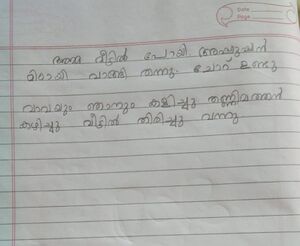 Date
Page
അമ്മ വീട്ടിൽ പോയി. അപ്പൂപ്പൻ
മിഠായി വാങ്ങി തന്നു. ചോറ് ഉണ്ടു
വാവയും ഞാനും കളിച്ചു തണ്ണിമത്തൻ
കഴിച്ചു വീട്ടിൽ തിരിച്ചു വന്നു